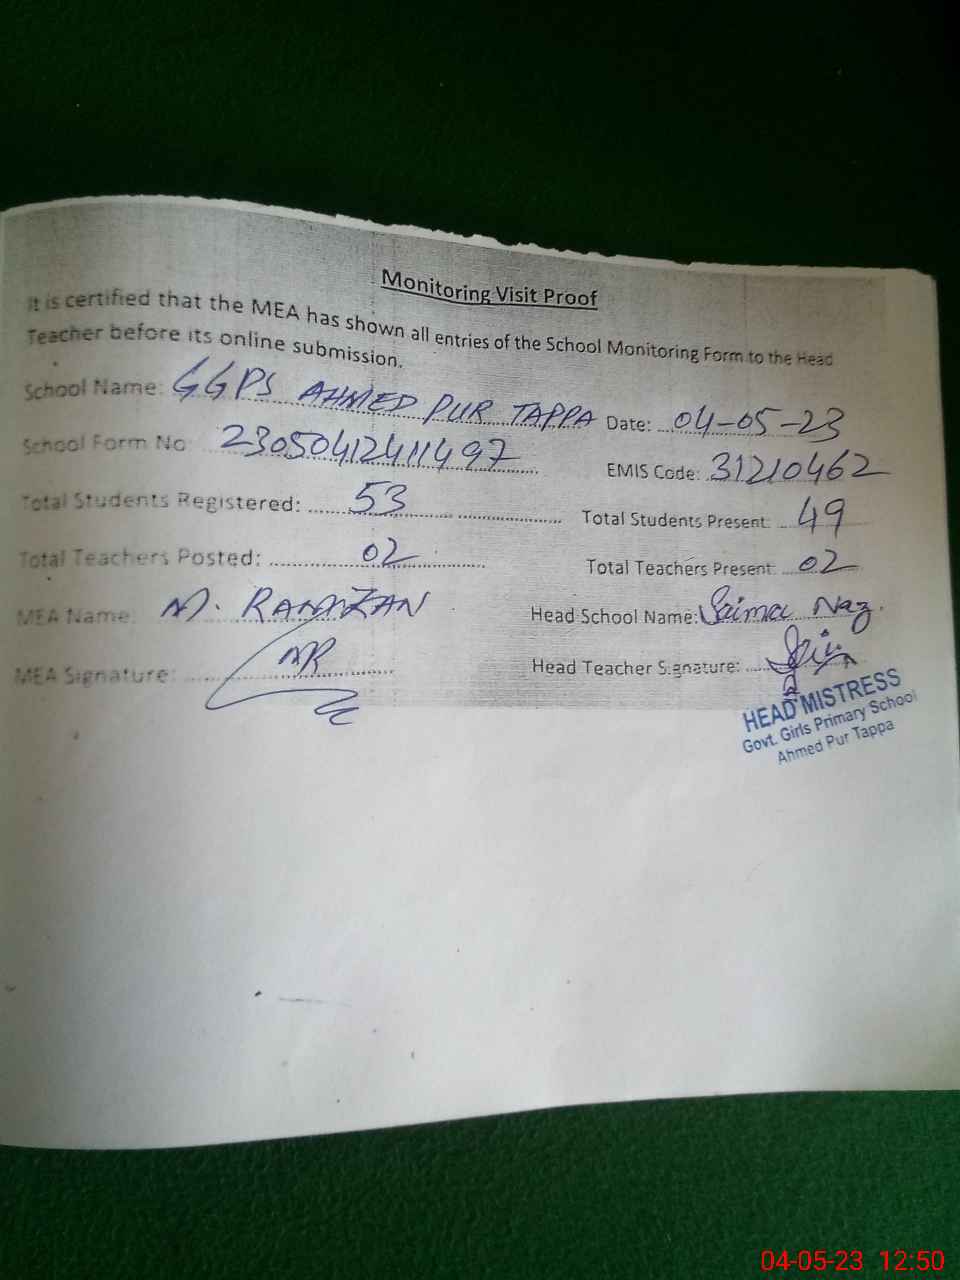 Monitoring Visit Proof
It is certified that the MEA has shown all entries of the School Monitoring Form to the Head
Teacher before its online submission.
School Name: GGPS AHMED PUR TAPPA Date: 04-05-23
School Form No: 2305041241149 7 EMIS Code: 31210462
Total Students Registered: 53 Total Students Present: 49
Total Teachers Posted: 02 Total Teachers Present: 02
MEA Name: M. RAMZAN Head School Name: Saima Naz.
MEA Signature: MR Head Teacher Signature:
HEAD MISTRESS
Govt. Girls Primary School
Ahmed Pur Tappa
04-05-23 12:50